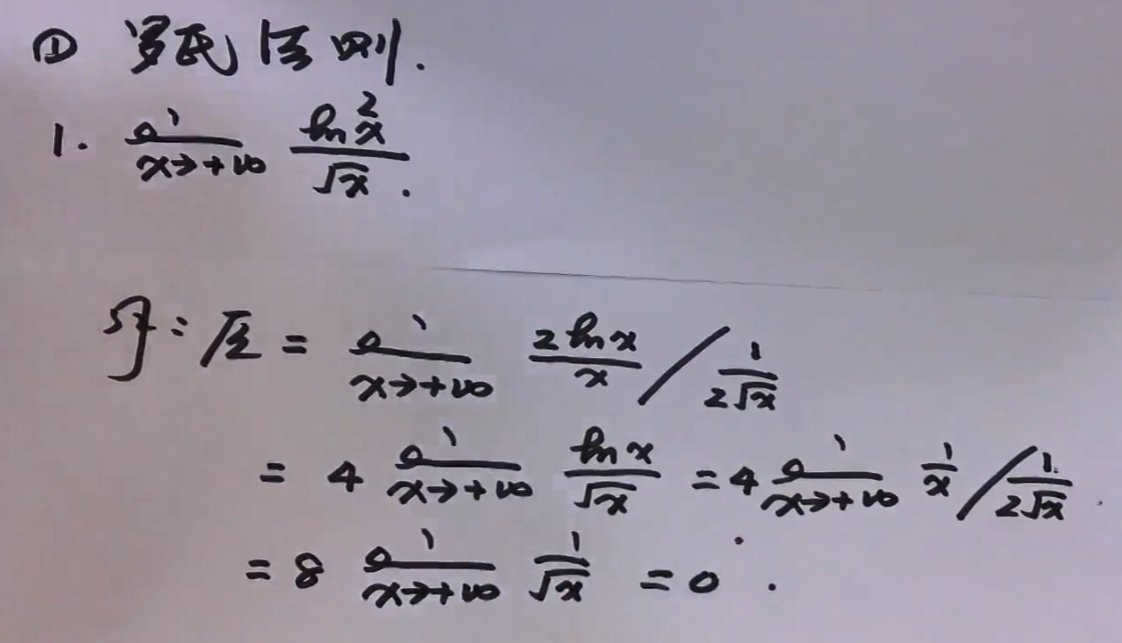 ① 罗氏法则.
1. lim x→+∞ ln²x/√x.
解: 原 = lim x→+∞ 2lnx/x / 1/2√x
= 4 lim x→+∞ lnx/√x = 4 lim x→+∞ 1/x / 1/2√x.
= 8 lim x→+∞ 1/√x = 0.